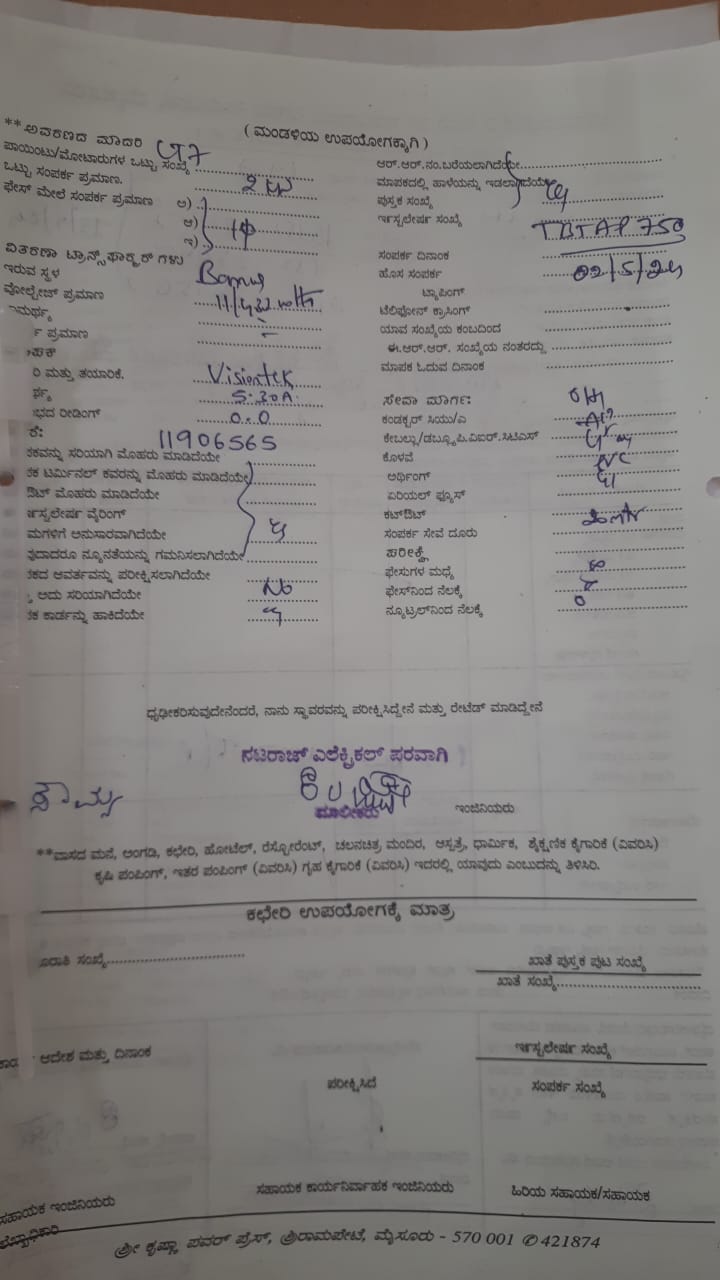 ( ಮಂಡಳಿಯ ಉಪಯೋಗಕ್ಕಾಗಿ )
**ಅವಕರಣದ ಮಾದರಿ
ಪಾಯಿಂಟು/ಮೋಟಾರುಗಳ ಒಟ್ಟು ಸಂಖ್ಯೆ
ಒಟ್ಟು ಸಂಪರ್ಕ ಪ್ರಮಾಣ.
ಫೇಸ್ ಮೇಲೆ ಸಂಪರ್ಕ ಪ್ರಮಾಣ ಅ)
ಆ)
ಇ)
ವಿತರಣಾ ಟ್ರಾನ್ಸ್‌ಫಾರ್ಮರ್ ಗಳು
ಇರುವ ಸ್ಥಳ
ವೋಲ್ಟೇಜ್ ಪ್ರಮಾಣ
ರಿ ಮತ್ತು ತಯಾರಿಕೆ. Visiontek
5-30A
ಭದ ರೀಡಿಂಗ್ 0.0
11906565
ಕವನ್ನು ಸರಿಯಾಗಿ ಮೊಹರು ಮಾಡಿದೆಯೇ
ಕ ಟರ್ಮಿನಲ್ ಕವರನ್ನು ಮೊಹರು ಮಾಡಿದೆಯೇ
ಔಟ್ ಮೊಹರು ಮಾಡಿದೆಯೇ
ವೈರಿಂಗ್
ಮಗಳಿಗೆ ಅನುಸಾರವಾಗಿದೆಯೇ
ವುದಾದರೂ ನ್ಯೂನತೆಯನ್ನು ಗಮನಿಸಲಾಗಿದೆಯೇ
ಕದ ಆವರ್ತವನ್ನು ಪರೀಕ್ಷಿಸಲಾಗಿದೆಯೇ
ಅದು ಸರಿಯಾಗಿದೆಯೇ No
ಕ ಕಾರ್ಡನ್ನು ಹಾಕಿದೆಯೇ
ಆರ್.ಆರ್.ನಂ.ಬರೆಯಲಾಗಿದೆಯೇ
ಮಾಪಕದಲ್ಲಿ ಹಾಳೆಯನ್ನು ಇಡಲಾಗಿದೆಯೇ
ಪುಸ್ತಕ ಸಂಖ್ಯೆ
ಸಂಖ್ಯೆ TBTAP 750
ಸಂಪರ್ಕ ದಿನಾಂಕ
ಹೊಸ ಸಂಪರ್ಕ 02/5/24
ಟ್ಯಾಪಿಂಗ್
ಟೆಲಿಫೋನ್ ಕ್ರಾಸಿಂಗ್
ಯಾವ ಸಂಖ್ಯೆಯ ಕಂಬದಿಂದ
ಈ.ಆರ್.ಆರ್. ಸಂಖ್ಯೆಯ ನಂತರದ್ದು
ಮಾಪಕ ಓದುವ ದಿನಾಂಕ
ಸೇವಾ ಮಾರ್ಗ:
ಕಂಡಕ್ಟರ್ ಸಿಯು/ಎ
ಕೇಬಲ್ಲು/ಡಬ್ಲ್ಯೂ.ಪಿ.ವಿಐರ್.ಸಿಟಿಎಸ್
ಕೊಳವೆ
ಅರ್ಥಿಂಗ್
ಏರಿಯಲ್ ಫ್ಯೂಸ್
ಕಟ್‌ಔಟ್
ಸಂಪರ್ಕ ಸೇವೆ ದೂರು
ಪರೀಕ್ಷೆ
ಫೇಸುಗಳ ಮಧ್ಯೆ
ಫೇಸ್‌ನಿಂದ ನೆಲಕ್ಕೆ
ನ್ಯೂಟ್ರಲ್‌ನಿಂದ ನೆಲಕ್ಕೆ
ಧೃಢೀಕರಿಸುವುದೇನೆಂದರೆ, ನಾನು ಸ್ಥಾವರವನ್ನು ಪರೀಕ್ಷಿಸಿದ್ದೇನೆ ಮತ್ತು ರೇಟೆಡ್ ಮಾಡಿದ್ದೇನೆ
ನಟರಾಜ್ ಎಲೆಕ್ಟ್ರಿಕಲ್ ಪರವಾಗಿ
ಮಾಲೀಕರು
ಇಂಜಿನಿಯರು
**ವಾಸದ ಮನೆ, ಅಂಗಡಿ, ಕಛೇರಿ, ಹೋಟೆಲ್, ರೆಸ್ಟೋರೆಂಟ್, ಚಲನಚಿತ್ರ ಮಂದಿರ, ಆಸ್ಪತ್ರೆ, ಧಾರ್ಮಿಕ, ಶೈಕ್ಷಣಿಕ ಕೈಗಾರಿಕೆ (ವಿವರಿಸಿ)
ಕೃಷಿ ಪಂಪಿಂಗ್, ಇತರ ಪಂಪಿಂಗ್ (ವಿವರಿಸಿ) ಗೃಹ ಕೈಗಾರಿಕೆ (ವಿವರಿಸಿ) ಇದರಲ್ಲಿ ಯಾವುದು ಎಂಬುದನ್ನು ತಿಳಿಸಿರಿ.
ಕಛೇರಿ ಉಪಯೋಗಕ್ಕೆ ಮಾತ್ರ
ಸಂಖ್ಯೆ
ಖಾತೆ ಪುಸ್ತಕ ಪುಟ ಸಂಖ್ಯೆ
ಖಾತೆ ಸಂಖ್ಯೆ
ಆದೇಶ ಮತ್ತು ದಿನಾಂಕ
ಸಂಖ್ಯೆ
ಪರೀಕ್ಷಿಸಿದೆ
ಸಂಪರ್ಕ ಸಂಖ್ಯೆ
ಸಹಾಯಕ ಇಂಜಿನಿಯರು
ಸಹಾಯಕ ಕಾರ್ಯನಿರ್ವಾಹಕ ಇಂಜಿನಿಯರು
ಹಿರಿಯ ಸಹಾಯಕ/ಸಹಾಯಕ
ಶ್ರೀ ಕೃಷ್ಣಾ ಪವರ್ ಪ್ರೆಸ್, ಶ್ರೀರಾಮಪೇಟೆ, ಮೈಸೂರು - 570 001 ✆ 421874